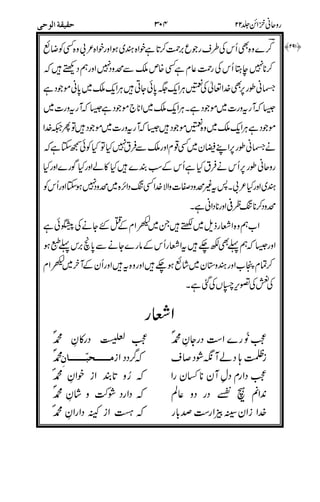 روحانی خزائن جلد ۲۲ ۳۰۴ حقیقۃ الوحی
﴿۲۹۱﴾ کرے وہ بھی اُس کی طرف رجوع برحمت کرتا ہے خواہ ہندی ہو اور خواہ عربی وہ کسی کو ضائع
کرنا نہیں چاہتا اُس کی رحمت عام ہے کسی خاص ملک سے محدود نہیں اور ہم دیکھتے ہیں کہ
جسمانی طور پر خدا تعالیٰ کی نعمتیں ہر ایک جگہ پائی جاتی ہیں ہر ایک ملک میں پانی موجود ہے
جیسا کہ آریہ ورت میں موجود ہے۔ ہر ایک ملک میں اناج موجود ہے جیسا کہ آریہ ورت میں
موجود ہے ہر ایک ملک میں وہ نعمتیں موجود ہیں جیسا کہ آریہ ورت میں موجود ہیں تو پھر جبکہ خدا
نے جسمانی طور پر اپنے فیضان میں کسی قوم اور ملک سے فرق نہیں کیا تو کیا کوئی سمجھ سکتا ہے کہ
روحانی طور پر اُس نے فرق کیا ہے اُس کے سب بندے ہیں کیا کالے اور کیا گورے اور کیا
ہندی اور کیا عربی۔ پس یہ غیر محدود صفات والا خدا کسی تنگ دائرہ میں محدود نہیں ہو سکتا اور اُس کو
محدود کرنا تنگ ظرفی اور نادانی ہے۔
اب ہم وہ اشعار ذیل میں لکھتے ہیں جن میں لیکھرام کے قتل کئے جانے کی پیشگوئی ہے
اور جیسا کہ ہم پہلے بھی لکھ چکے ہیں یہ اشعار اُس کے مارے جانے سے پانچ برس پہلے طبع ہو
کر تمام پنجاب اور ہندوستان میں شائع ہو چکے ہیں اور وہ یہ ہیں اور اُن کے آخر میں لیکھرام
کی نعش کی تصویر چسپاں کی گئی ہے۔
اشعار
عجب نُوریست در جانِ محمدؐ عجب لعلیست در کانِ محمدؐ
ز ظلمت ہا دلے آنگہ شود صاف کہ گردد از محبّانِ محمدؐ
عجب دارم دلِ آں ناکساں را کہ رُو تابند از خوانِ محمدؐ
ندانم ہیچ نفسے در دو عالم کہ دارد شوکت و شانِ محمدؐ
خدا زاں سینہ بیزارست صد بار کہ ہست از کینہ دارانِ محمدؐ